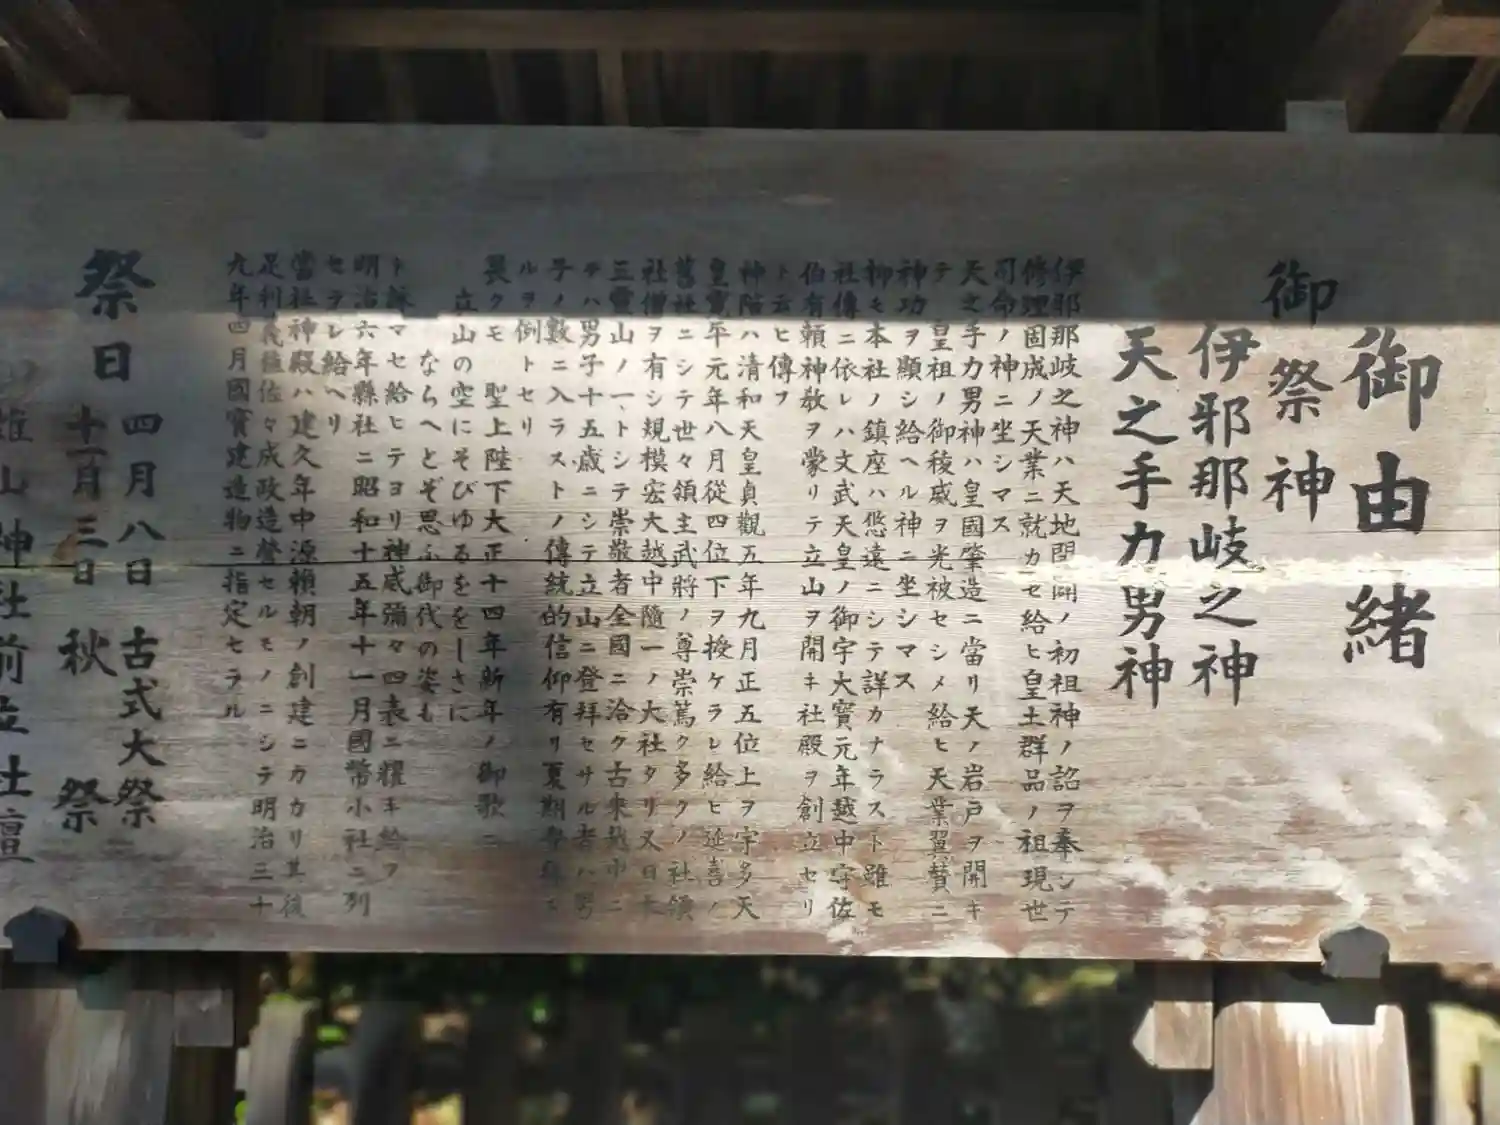 御由緒
御祭神
伊邪那岐之神
天之手力男神
伊那那岐之神ハ天地開闢ノ初祖神ノ詔ヲ奉シテ
修理固成ノ天業ニ就カセ給ヒ皇土群品ノ祖現世
司命ノ神ニ坐シマス
天之手力男神ハ皇國肇造ニ當リ天ノ岩戸ヲ開キ
テ皇祖ノ御稜威ヲ光被セシメ給ヒ天業翼賛ニ
神功ヲ顯シ給ヘル神ニ坐シマス
抑モ本社ノ鎮座ハ悠遠ニシテ詳カナラスト雖モ
社傳ニ依レハ文武天皇ノ御宇大寶元年越中守佐
伯有頼神敎ヲ蒙リテ立山ヲ開キ社殿ヲ創立セリ
ト云ヒ傳フ
神階ハ清和天皇貞觀五年九月正五位上ヲ宇多天
皇寛平元年八月從四位下ヲ授ケラレ給ヒ延喜ノ
舊社ニシテ世々領主武將ノ尊崇篤ク多クノ社領
社僧ヲ有シ規模宏大越中隨一ノ大社タリ又日本
三靈山ノ一トシテ崇敬者全國ニ洽ク古来越中ニ
テハ男子十五歳ニシテ立山ニ登拜セサル者ハ男
子ノ數ニ入ラストノ傳統的信仰有リ夏期
ルヲ例トセリ
畏クモ 聖上陛下大正十四年新年ノ御歌ニ
立山の空にそびゆるををしさに
ならへとぞ思ふ御代の姿も
ト詠マセ給ヒテヨリ神威彌々四表ニ耀キ給フ
明治六年縣社ニ昭和十五年十一月國幣小社ニ列
セラレ給ヘリ
當社神殿ハ建久年中源賴朝ノ創建ニカカリ其後
足利義 佐々成政造營セルモノニシテ明治三十
九年四月國寳建造物ニ指定セラル
祭日 四月八日 古式大祭
十一月三日 秋祭
雄山神社前立社壇